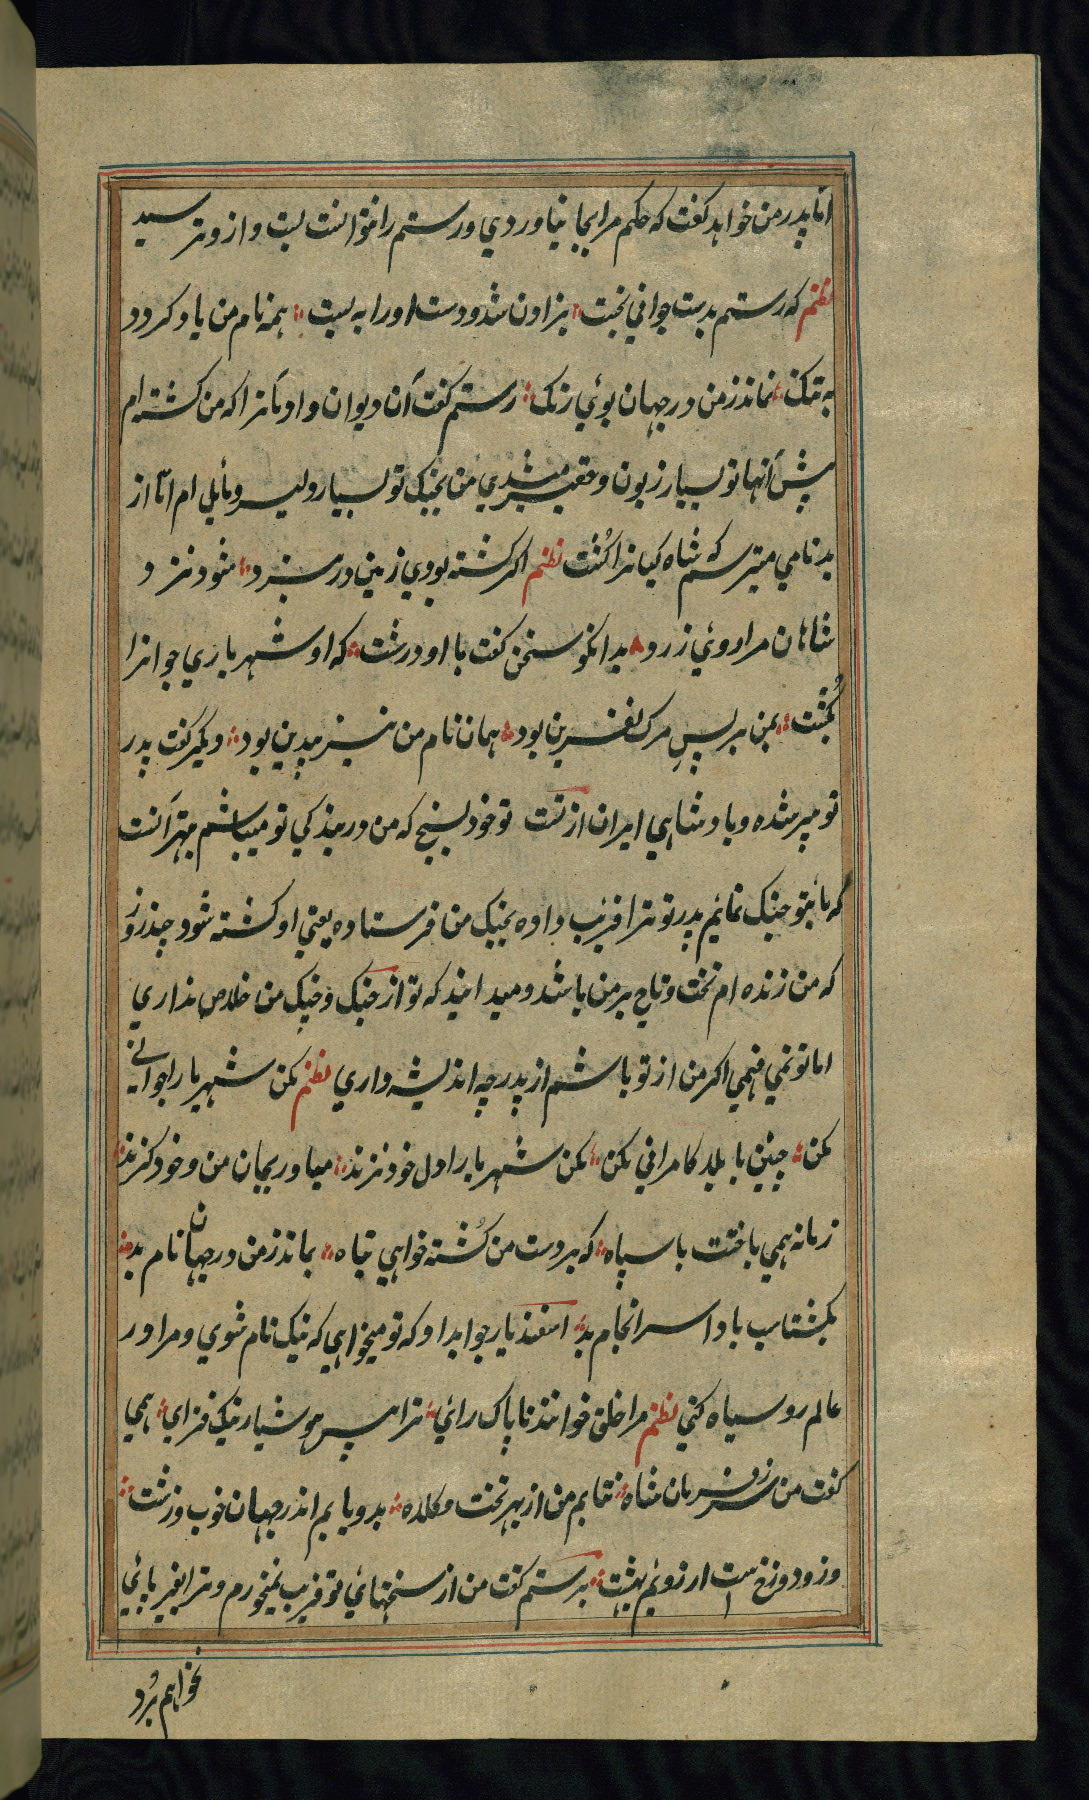 اما پدر من خواهد گفت که حکم مرا بجا نیاوردی و رستم را نتوانست بست و ازو ترسید
نظم که رستم بدست جوانی بخست بزاون شد و دست او را به بست همه نام من یاد کردد
به ننک نماند ز من در جهان بوئی رنک رستم کفت آن دیوان و اوباترا که من کشته ام
پیش آنها تو بسیار زبون و حقیر میشدی من بجنک تو بسیار دلیر و مایل ام اما از
بدنامی میترسم که شاه کیانرا کُشت نظم اکر کشته بودی زمین در نبرد شود نزد
شاهان مرا روئی زرد بدانکو سخن کفت با او درشت که او شهریاری جوانرا
بکُشت بمن بر پسِ مرک نفرین بود همان نام من نیز بیدین بود دیکر کفت پدر
تو پیر شده و بادشاهی ایران از تست تو خود بسنج که من در بندکی تو میباشم بهتر آنست
که با تو جنک نمائیم پدر تو ترا فریب داده بجنک من فرستاده یعنی او کشته شود چند روز
که من زنده ام تخت و تاج بر من باشد و میداند که تو از جنک و جنک من خلاص نداری
اما تو نمی فهمی اکر من از تو باشم از پدر چه اندیشه داری نظم مکن شهریارا جوانی
مکن چنین با بلا کامرانی مکن مکن شهریارا دل خود نژند میاور بجان من و خود کزند
زمانه همی تاختت با سپاه که بر دست من کُشته خواهی تباه بماند ز من در جهان نام بد
بکشتاسب بادا سرانجام بد اسفندیار جواب داد که تو میخواهی که نیک نام شوی و مرا در
عالم روسیاه کنی نظم مرا خلق خوانند ناپاک رائی ترا پیر هوشیار نیک فزای همی
کفت من سر ز فرمان شاه نتابم من از بهر تخت و کلاه بدو یابم اندر جهان خوب و زشت
وزو دوزخ است ارزویم بهشت برستم کفت من از سخنهائی تو فریب نمیخورم و ترا بغیر پائی
نخواهم بُرد